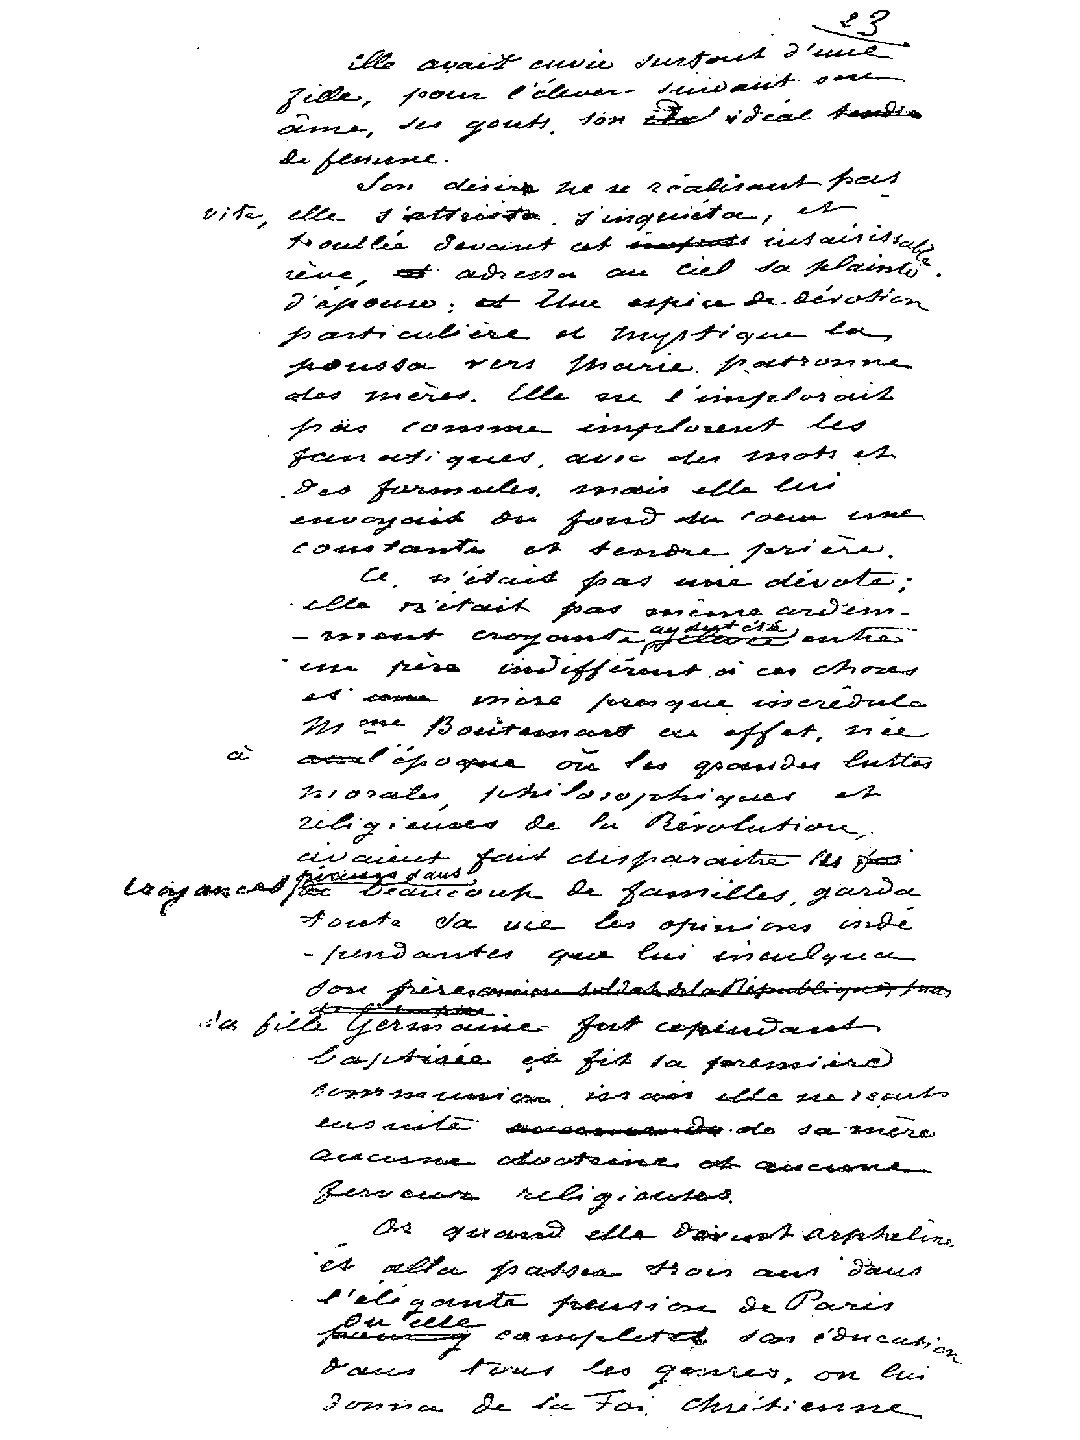 23
elle avait envie surtout d'une
fille, pour l'élever suivant son
âme, ses gouts, son idéal tendre
de femme.
Son désir ne se réalisant pas
vite, elle s'attrista, s'inquiéta, et
troublée devant cet intarissable
rêve, et adressa au ciel sa plainte
d'épouse; et Une espèce de dévotion
particulière et mystique la
poussa vers Marie, patronne
des mères. Elle ne l'implorait
pas comme implorent les
fanatiques, avec des mots et
des formules, mais elle lui
envoyait du fond du coeur une
constante et tendre prière.
Ce n'était pas une dévote;
elle n'était pas même ardem-
-ment croyante, ayant été entre
un père indifférent à ces choses
et une mère presque incrédule
Mme Boutemart en effet, née
à l'époque où les grandes luttes
morales, philosophiques et
religieuses de la Révolution,
avaient fait disparaitre les foi
croyances pieuses dans beaucoup de familles, garda
toute sa vie les opinions indé
-pendantes que lui inculqua
son père, ancien soldat de la République, puis
de l'empire
Sa fille Germaine fut cependant
baptisée et fit sa première
communion, mais elle ne reçut
ensuite de sa mère
aucune doctrine et aucune
ferveur religieuses.
Or quand elle devint orpheline
et alla passer trois ans dans
l'élégante pension de Paris
où elle
complet son éducation
dans tous les genres, on lui
donna de la Foi Chrétienne